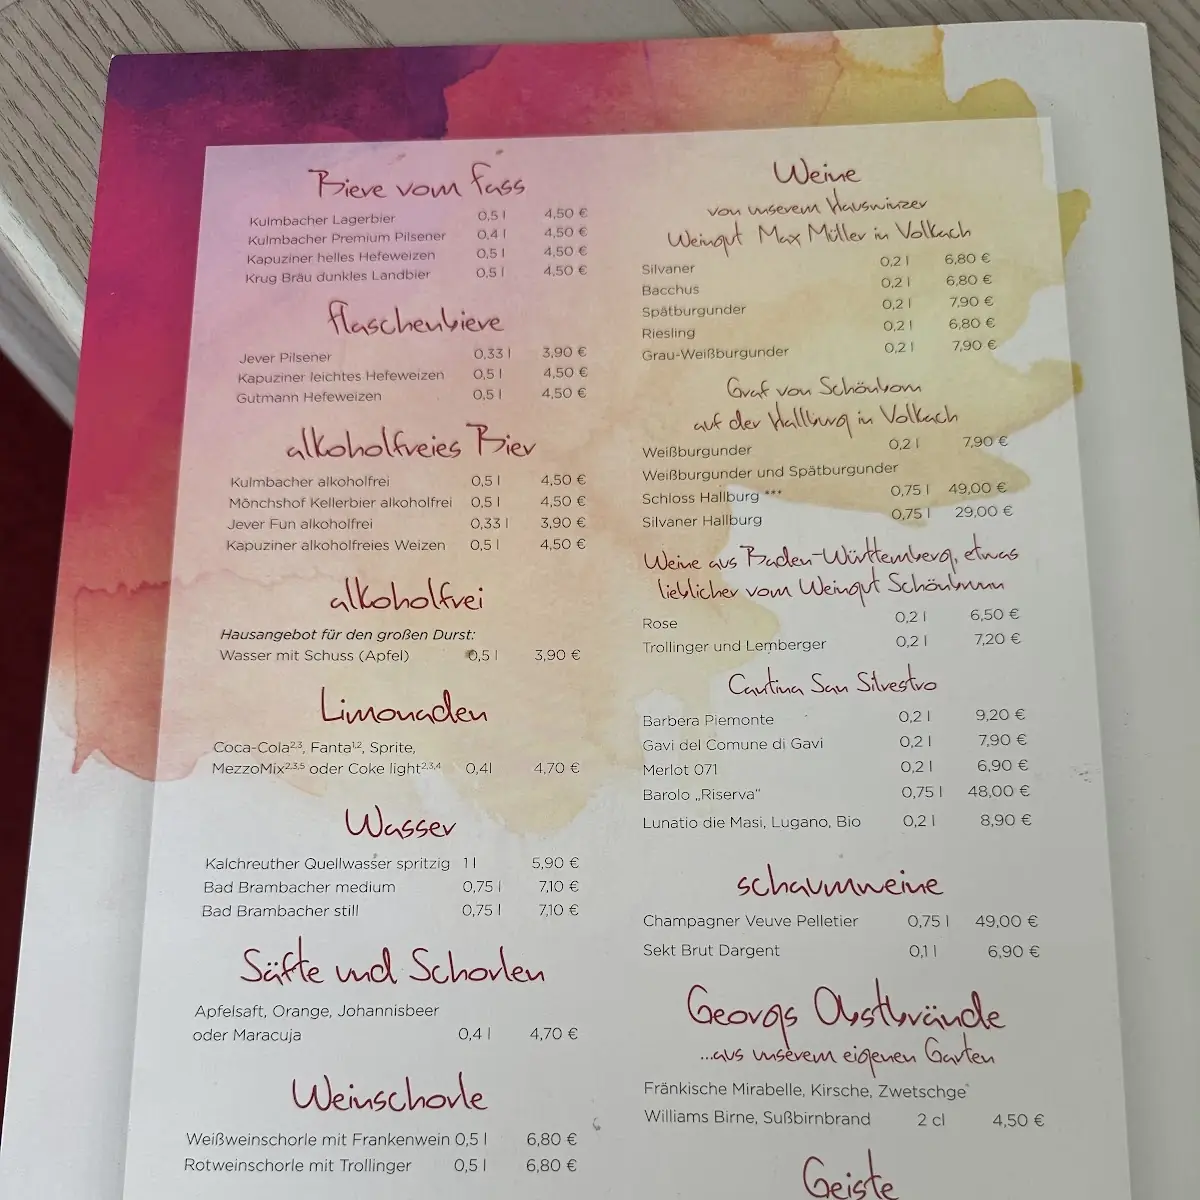 Biere vom Fass
Kulmbacher Lagerbier 0,5 l 4,50 €
Kulmbacher Premium Pilsener 0,4 l 4,50 €
Kapuziner helles Hefeweizen 0,5 l 4,50 €
Krug Bräu dunkles Landbier 0,5 l 4,50 €
flaschenbiere
Jever Pilsener 0,33 l 3,90 €
Kapuziner leichtes Hefeweizen 0,5 l 4,50 €
Gutmann Hefeweizen 0,5 l 4,50 €
alkoholfreies Bier
Kulmbacher alkoholfrei 0,5 l 4,50 €
Mönchshof Kellerbier alkoholfrei 0,5 l 4,50 €
Jever Fun alkoholfrei 0,33 l 3,90 €
Kapuziner alkoholfreies Weizen 0,5 l 4,50 €
alkoholfrei
Hausangebot für den großen Durst:
Wasser mit Schuss (Apfel) 0,5 l 3,90 €
Limonaden
Coca-Cola2,3, Fanta1,2, Sprite,
MezzoMix2,3,5 oder Coke light2,3,4 0,4l 4,70 €
Wasser
Kalchreuther Quellwasser spritzig 1 l 5,90 €
Bad Brambacher medium 0,75 l 7,10 €
Bad Brambacher still 0,75 l 7,10 €
Säfte und Schorlen
Apfelsaft, Orange, Johannisbeer
oder Maracuja 0,4 l 4,70 €
Weinschorle
Weißweinschorle mit Frankenwein 0,5 l 6,80 €
Rotweinschorle mit Trollinger 0,5 l 6,80 €
Weine
von unserem Hauswinzer
Weingut Max Müller in Volkach
Silvaner 0,2 l 6,80 €
Bacchus 0,2 l 6,80 €
Spätburgunder 0,2 l 7,90 €
Riesling 0,2 l 6,80 €
Grau-Weißburgunder 0,2 l 7,90 €
Graf von Schönborn
auf der Hallburg in Volkach
Weißburgunder 0,2 l 7,90 €
Weißburgunder und Spätburgunder
Schloss Hallburg *** 0,75 l 49,00 €
Silvaner Hallburg 0,75 l 29,00 €
Weine aus Baden-Württemberg, etwas
lieblicher vom Weingut Schönbrunn
Rose 0,2 l 6,50 €
Trollinger und Lemberger 0,2 l 7,20 €
Cantina San Silvestro
Barbera Piemonte 0,2 l 9,20 €
Gavi del Comune di Gavi 0,2 l 7,90 €
Merlot 071 0,2 l 6,90 €
Barolo „Riserva“ 0,75 l 48,00 €
Lunatio die Masi, Lugano, Bio 0,2 l 8,90 €
schaumweine
Champagner Veuve Pelletier 0,75 l 49,00 €
Sekt Brut Dargent 0,1 l 6,90 €
Georgs Obstbrände
...aus unserem eigenen Garten
Fränkische Mirabelle, Kirsche, Zwetschge
Williams Birne, Sußbirnbrand 2 cl 4,50 €
Geiste